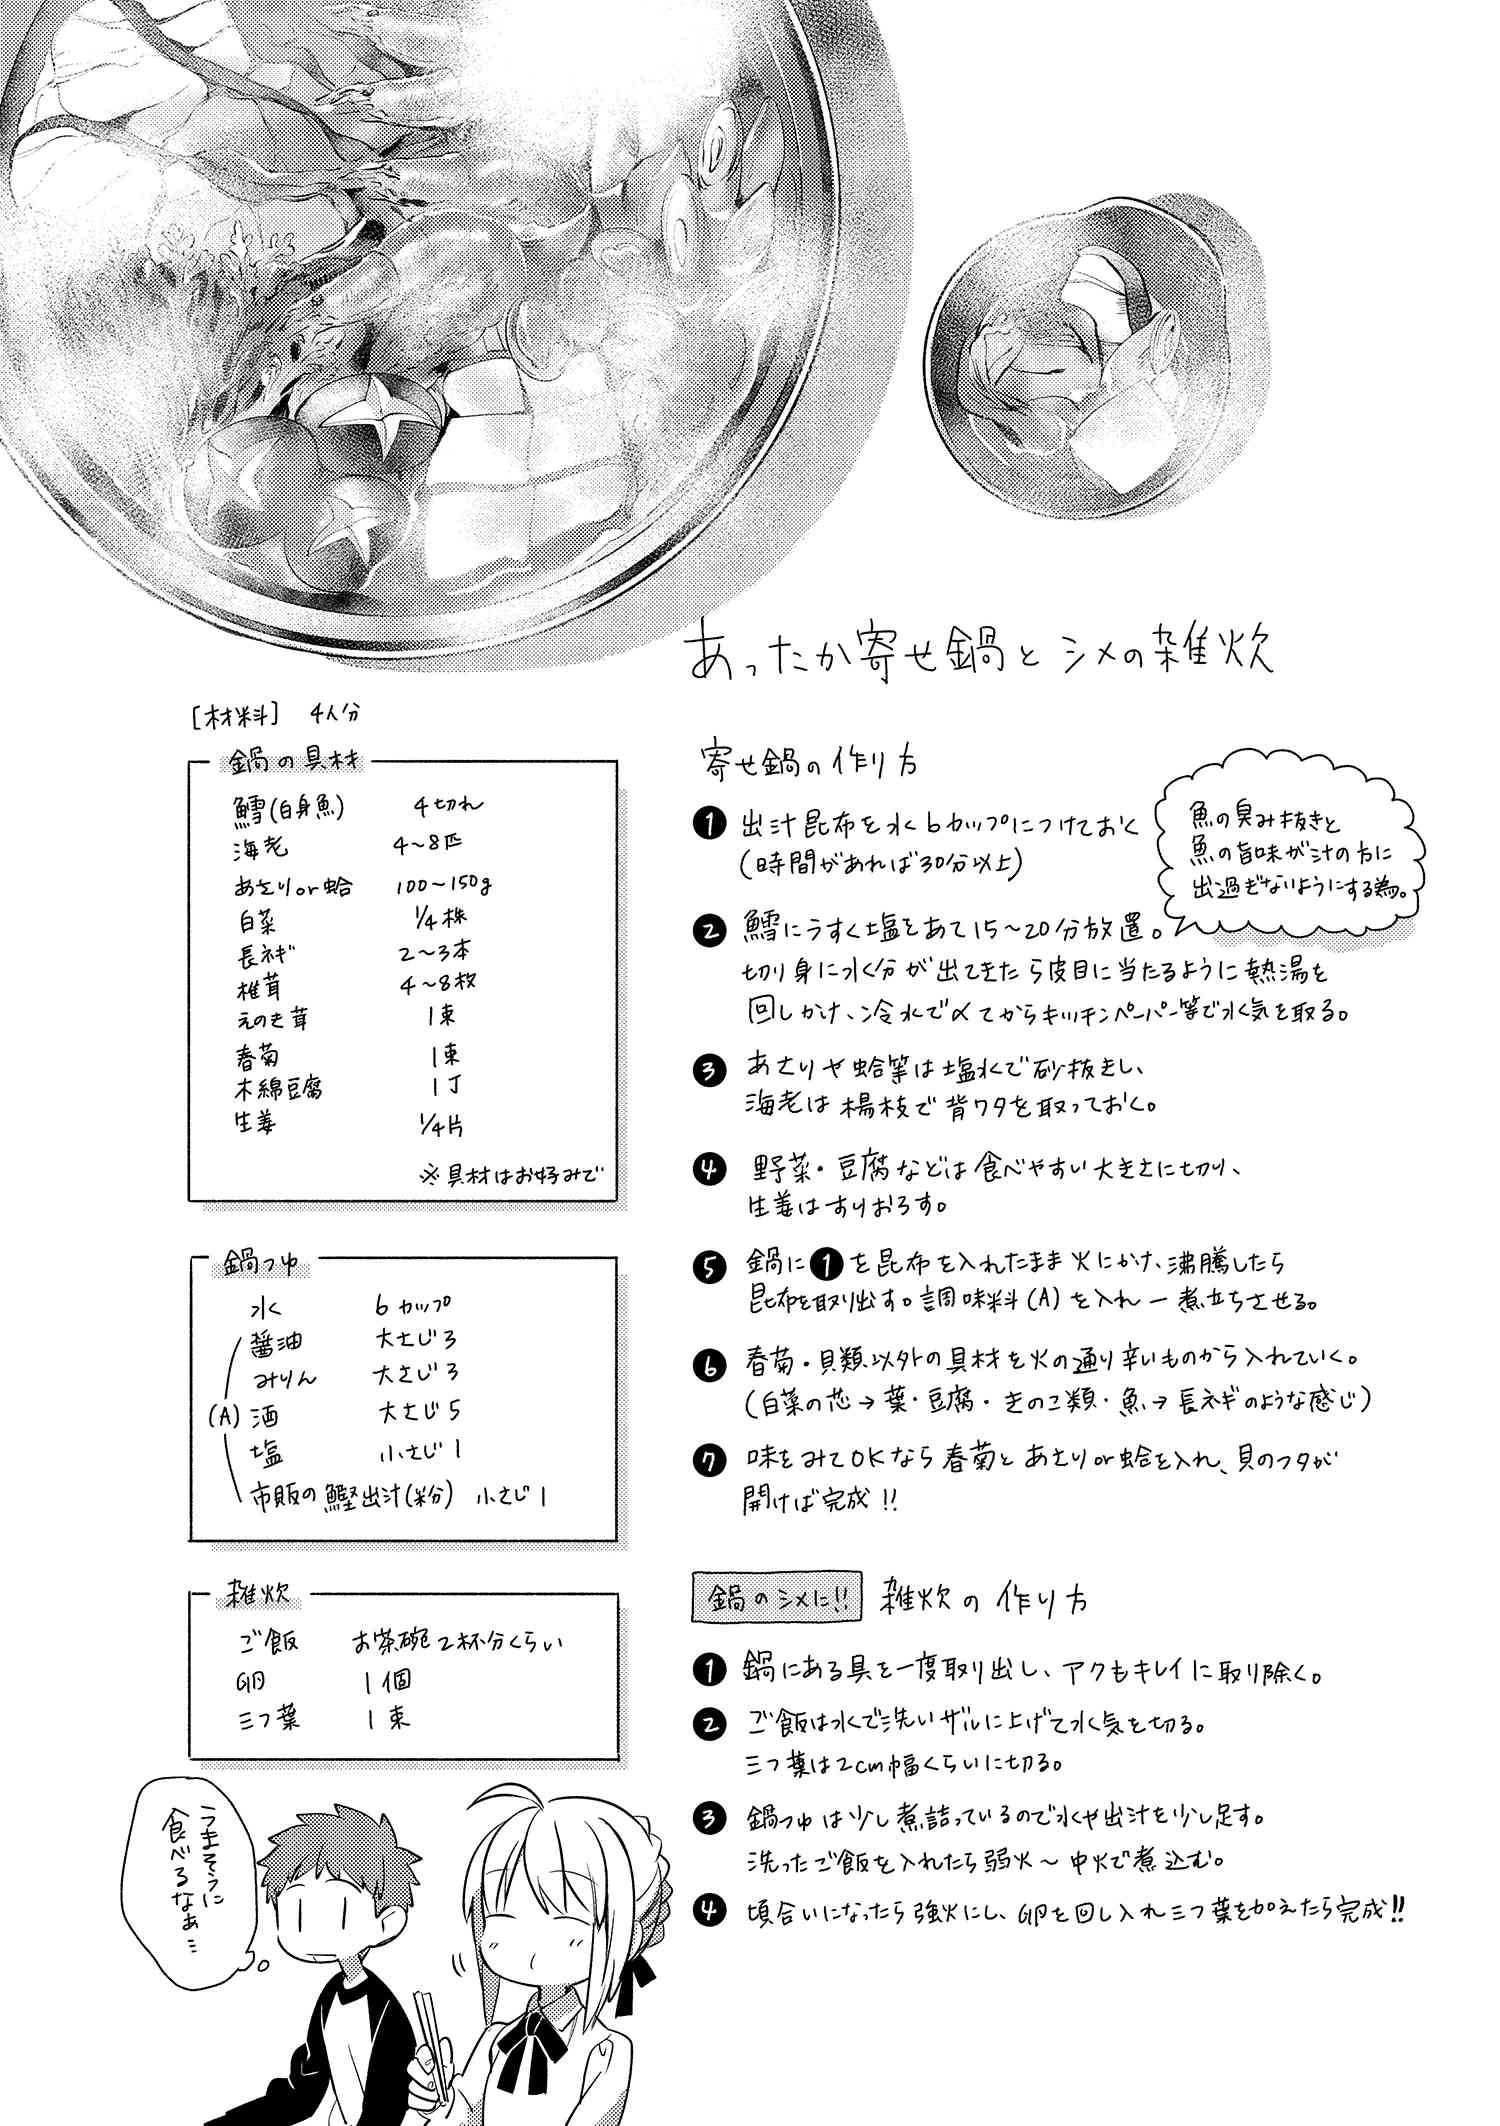 あったか寄せ鍋とシメの雑炊
[材料] 4人分
鍋の具材
鱈(白身魚) 4切れ
海老 4~8匹
あさりor蛤 100~150g
白菜 1/4株
長ネギ 2~3本
椎茸 4~8枚
えのき茸 1束
春菊 1束
木綿豆腐 1丁
生姜 1/4片
※具材はお好みで
鍋つゆ
水 6カップ
醤油 大さじ3
みりん 大さじ3
(A) 酒 大さじ5
塩 小さじ1
市販の鰹出汁(粉) 小さじ1
雑炊
ご飯 お茶碗2杯分くらい
卵 1個
三つ葉 1束
寄せ鍋の作り方
❶ 出汁昆布を水6カップにつけておく
(時間があれば30分以上)
❷ 鱈にうすく塩をあて15~20分放置。
切り身に水分が出てきたら皮目に当たるように熱湯を
回しかけ、冷水で〆てからキッチンペーパー等で水気を取る。
魚の臭み抜きと
魚の旨味が汁の方に
出過ぎないようにする為。
❸ あさりや蛤等は塩水で砂抜きし、
海老は楊枝で背ワタを取っておく。
❹ 野菜・豆腐などは食べやすい大きさに切り、
生姜はすりおろす。
❺ 鍋に❶を昆布を入れたまま火にかけ、沸騰したら
昆布を取り出す。調味料(A)を入れ一煮立ちさせる。
❻ 春菊・貝類以外の具材を火の通り辛いものから入れていく。
(白菜の芯→葉・豆腐・きのこ類・魚→長ネギのような感じ)
❼ 味をみてOKなら春菊とあさりor蛤を入れ、貝のフタが
開けば完成!!
鍋のシメに!! 雑炊の作り方
❶ 鍋にある具を一度取り出し、アクもキレイに取り除く。
❷ ご飯は水で洗いザルに上げて水気を切る。
三つ葉は2cm幅くらいに切る。
❸ 鍋つゆは少し煮詰っているので水や出汁を少し足す。
洗ったご飯を入れたら弱火~中火で煮込む。
❹ 頃合いになったら強火にし、卵を回し入れ三つ葉を加えたら完成!!
うまそうに
食べるなぁ…